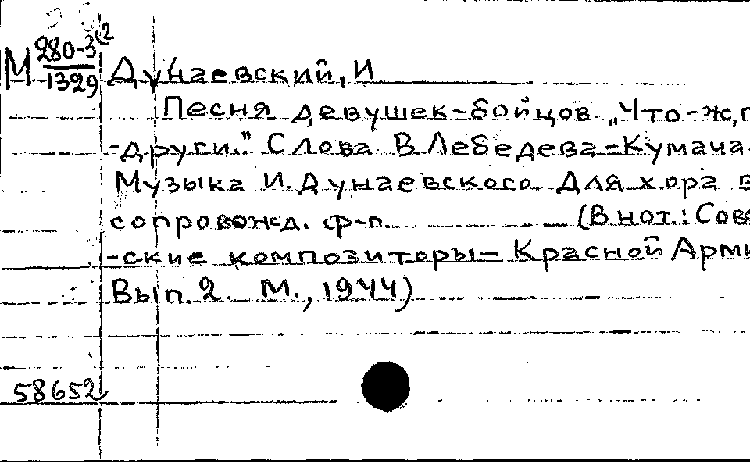 М 280-3
1329
Дунаевский, И
Песня девушек-бойцов „Что-ж,п
-други." Слова В Лебедева-Кумача
Музыка И.Дунаевского Для хора в
сопровожд. ф-п. (В нот.: Сове
-ские композиторы- Красной Арми
Вып. 2. М., 1944)
58652